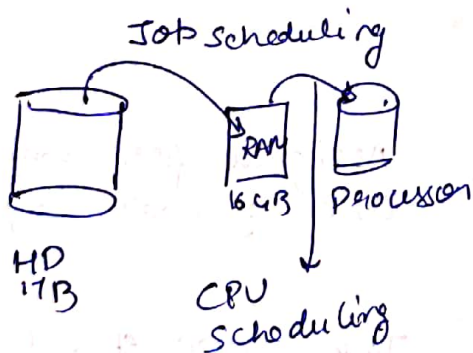 Job scheduling
RAM
16 GB
Processor
HD
1TB
CPU
Scheduling